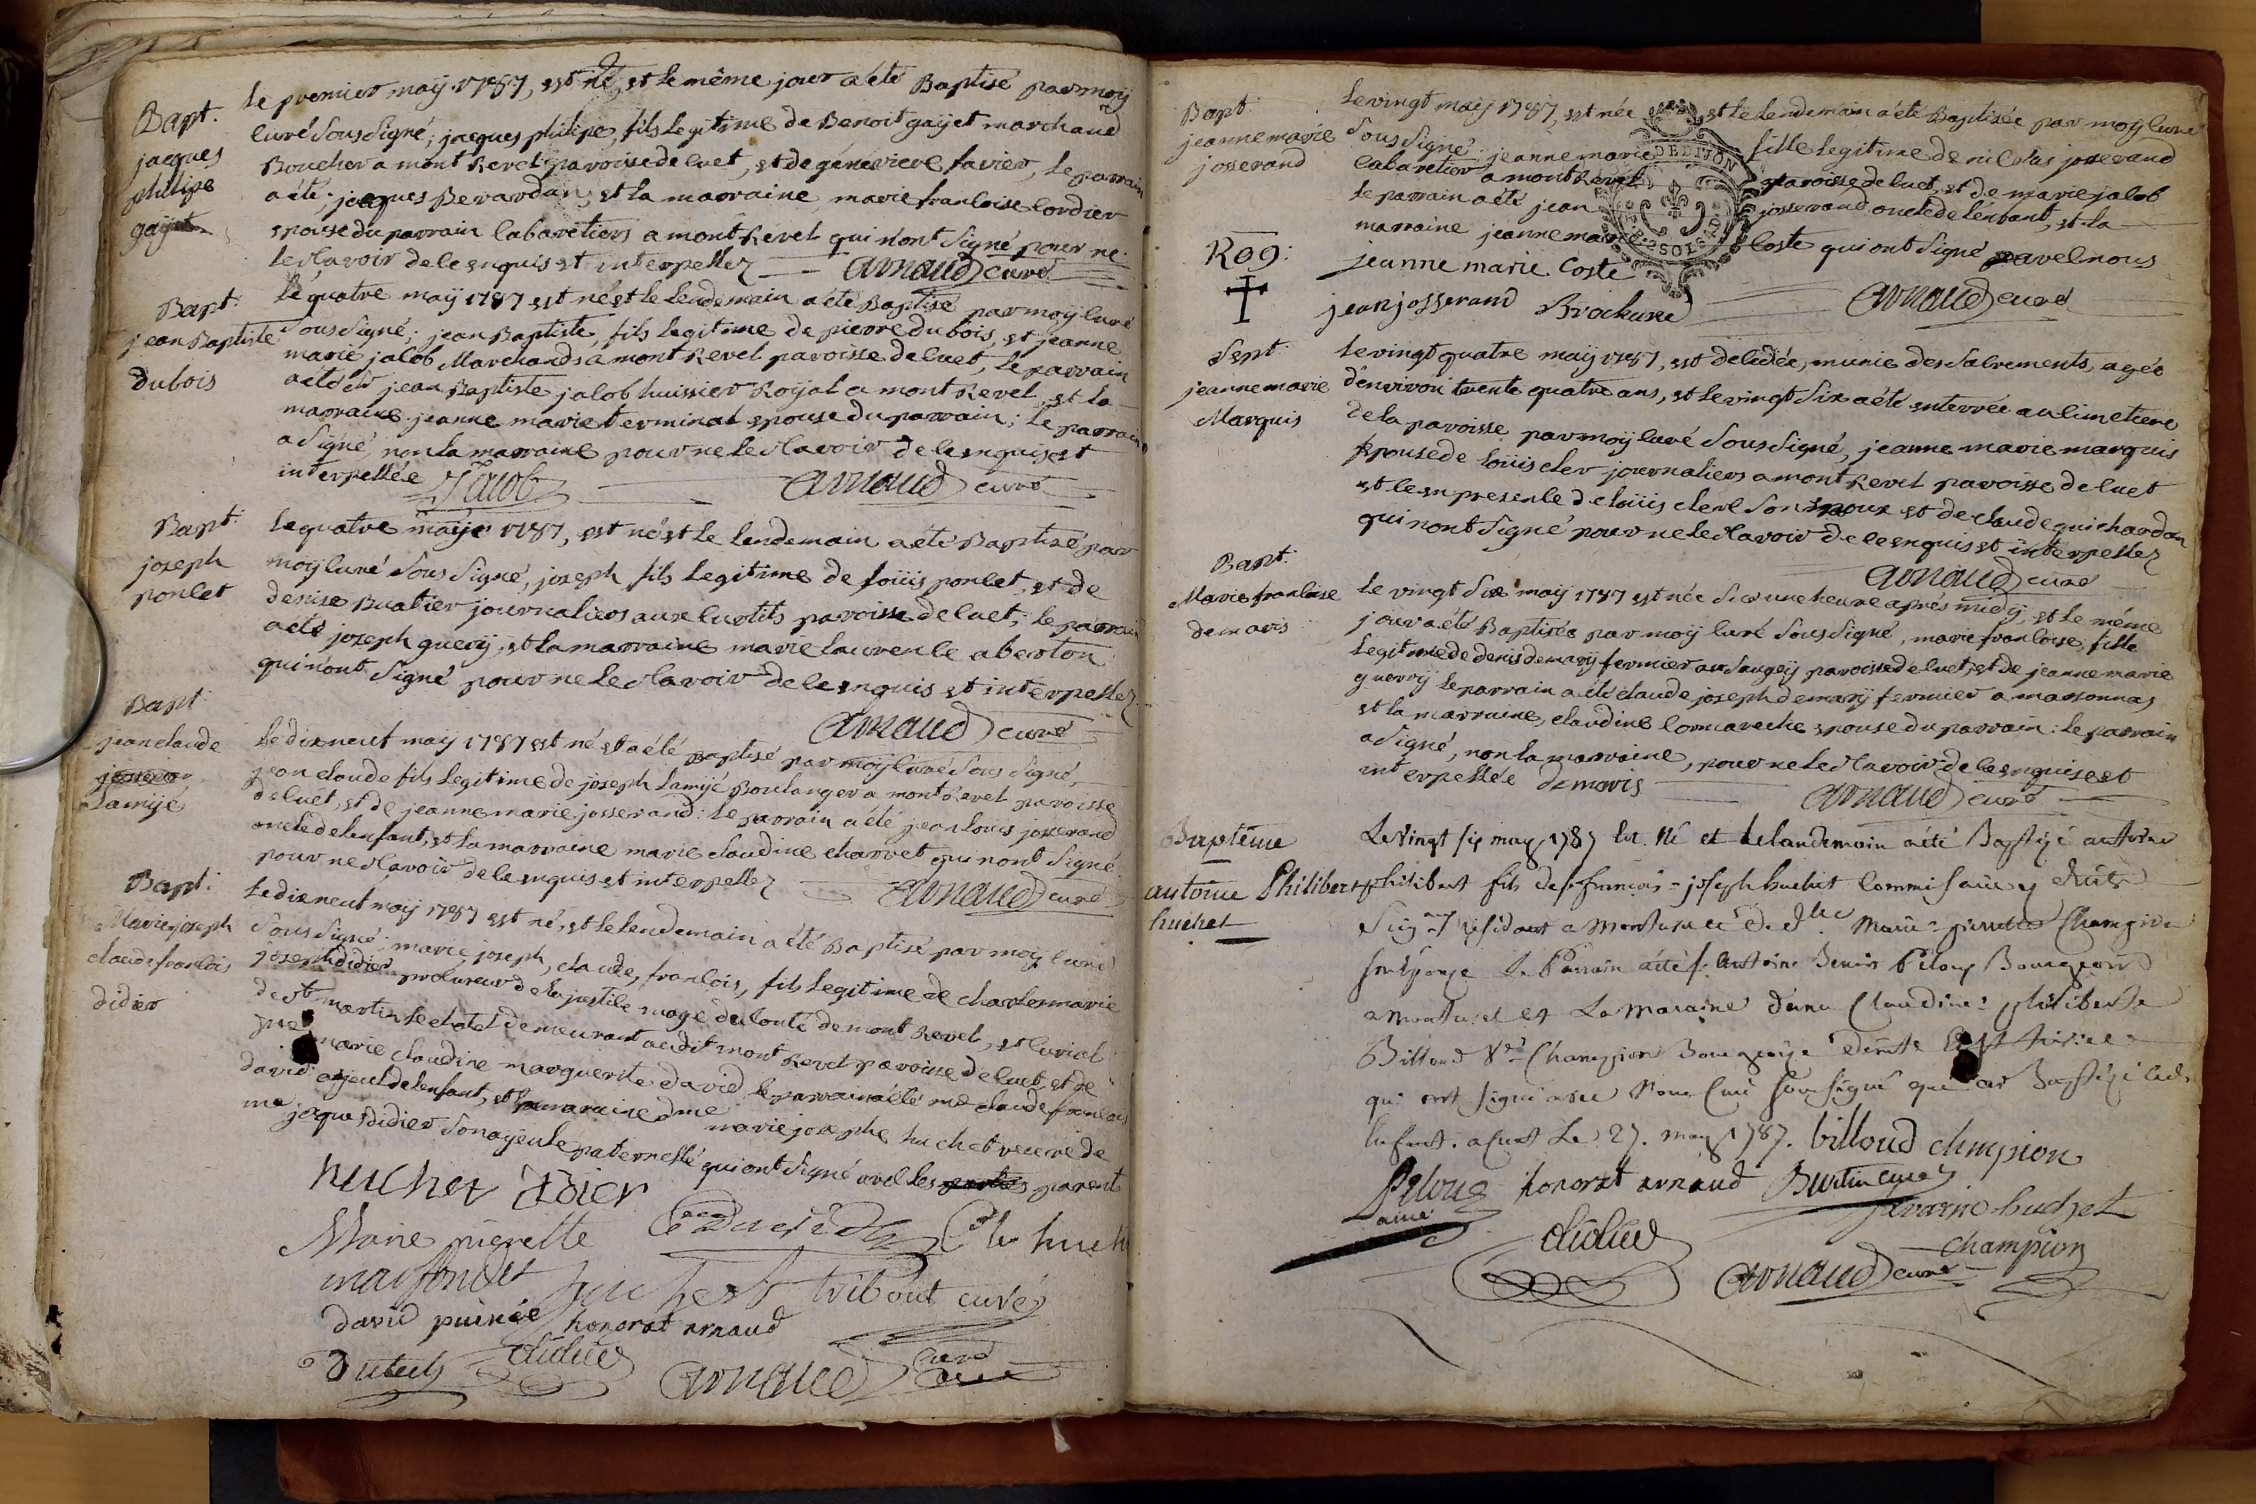 Bapt.
jacques
philipe
gayet
le premier maÿ 1787, est né, et le même jour a été Baptisé par moÿ
curé sous signé; jacques philipe, fils legitime de Benoit gaÿet marchand
Boucher a mont Revel paroisse de cuet, et de géneviere favier, le parrain
a été; jacques Bevardan, et la marraine marie francoise cordier
epouse du parrain cabaretiers a mont Revel qui n'ont signé pour ne
le sçavoir de ce enquis et interpellez arnaud curé
Bapt:
jean Baptiste
dubois
le quatre maÿ 1787 est né et le lendemain a été Baptisé par moÿ curé
sous signé; jean Baptiste, fils legitime de pierre dubois, et jeanne
marie jacob Marchands a mont Revel paroisse de cuet, le parrain
a été sr jean Baptiste jacob huissier Roÿal a mont Revel, et la
marraine jeanne marie terminal epouse du parrain; le parrain
a signé, non la marraine pour ne le sçavoir de ce enquise et
interpellée Jacob arnaud curé
Bapt:
joseph
poncet
le quatre maÿ 1787, est né et le lendemain a été Baptisé par
moÿ curé sous signé, joseph fils legitime de loüis poncet, et de
denise Buatier journaliers aux curtils paroisse de cuet; le parrain
a été joseph guerÿ, et la marraine marie laurence aberton
qui n'ont signé pour ne le sçavoir de ce enquis et interpellez
arnaud curé
Bapt:
jean claude
lamijé
le dix neuf maÿ 1787 est né et a été baptisé par moÿ curé sous signé,
jean claude fils legitime de joseph lamijé Boulanger a mont Revel paroisse
de cuet, et de jeanne marie josserand: le parrain a été jean louis josserand
oncle de lenfant, et la marraine marie claudine charvet qui nont signé
pour ne sçavoir de ce enquis et interpellez arnaud curé
Bapt:
Marie joseph
claude francois
didier
le dix neuf maÿ 1787 est né, et le lendemain a été Baptisé par moÿ curé
sous signé; marie joseph, claude, francois, fils legitime de charlesmarie
joseph didier procureur de la justice mage du comté de mont Revel, et curial
de st martin le chatel demeurant audit mont Revel paroisse de cuet, et de
marie claudine marguerite david le parrain a été me claude francois
david ayeul de lenfant, et la marraine dme marie josephe huchet veuve de
me jaques didier son ayeule paternelle qui ont signé avec les parents
huchet didier
Marie pierette
huch
huchet tribout curé
david puinée honorat arnaud
Dubuch didier arnaud curé
Bapt:
jeanne marie
josserand
le vingt maÿ 1787, est née et le lendemain a été Baptisée par moÿ curé
sous signé jeanne marie fille legitime de nicolas josserand
cabaretier a mont Revel paroisse de cuet, et de marie jacob
le parrain a été jean josserand oncle de lenfant, et la
marraine jeanne marie coste qui ont signé avec nous
DE DIJON
SOLS
jeanne marie Coste
jean josserand Brochure arnaud curé
Rog:
Sept:
jeanne marie
Marquis
le vingt quatre maÿ 1787, est decedée, munie des sacrements, agée
d'environ trente quatre ans, et le vingt six a été enterrée au cimetiere
de la paroisse par moÿ curé sous signé, jeanne marie marquis
epouse de loüis clerc journaliers a mont Revel paroisse de cuet
et ce en presence de loüis clerc son epoux et de claude guichardan
qui nont signé pour ne le sçavoir de ce enquis et interpellez
arnaud curé
Bapt:
Marie francoise
demaris
le vingt six maÿ 1787 est née sur une heure aprés midÿ, et le même
jour a été Baptisée par moÿ curé sous signé, marie francoise, fille
legitime de denis demarÿ fermier au saugeÿ paroisse de cuet, et de jeanne marie
guerrÿ le parrain a été claude joseph demarÿ fermier a marsonnas
et la marraine, claudine cormareche epouse du parrain: le parrain
a signé, non la marraine, pour ne le sçavoir de ce enquise et
interpellée demaris arnaud curé
Baptême
antoine Philibert
huchet
Le Vingt six may 1787 est Né et le landemain a été Baptizé antoine
philibert fils de sr francois-joseph huchet Commissaire es droits
Seigx résidant a Montrevel et de dlle Marie-pierrette Champion
son Epouse Le Parrain a été sr Antoine Denis Peloux Bourgeois
a Montrevel et La Maraine dame Claudine-philiberte
Billoud Vve Champion Bourgeoise
qui ont signé avec Nous Curé soussigné qui as Baptizé led
Enfant. a Cuet Le 27. may 1787. billoud chmpion
Peloux ainé honorat arnaud Burtin curé
huchet
didier champion
arnaud curé